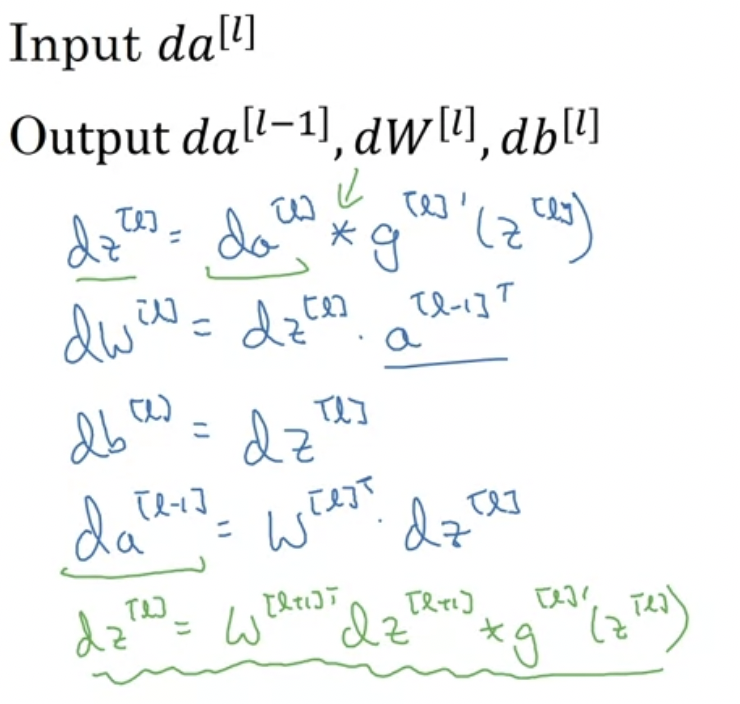 Input da^[l]
Output da^[l−1], dW^[l], db^[l]
dz^[l] = da^[l] * g^[l]'(z^[l])
dW^[l] = dz^[l] · a^[l-1]T
db^[l] = dz^[l]
da^[l-1] = W^[l]T · dz^[l]
dz^[l] = W^[l+1]T dz^[l+1] * g^[l]'(z^[l])